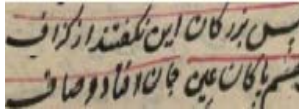 پس بزرگان این نگفتند از گزاف
جسم پاکان عین جان افتاد و صاف